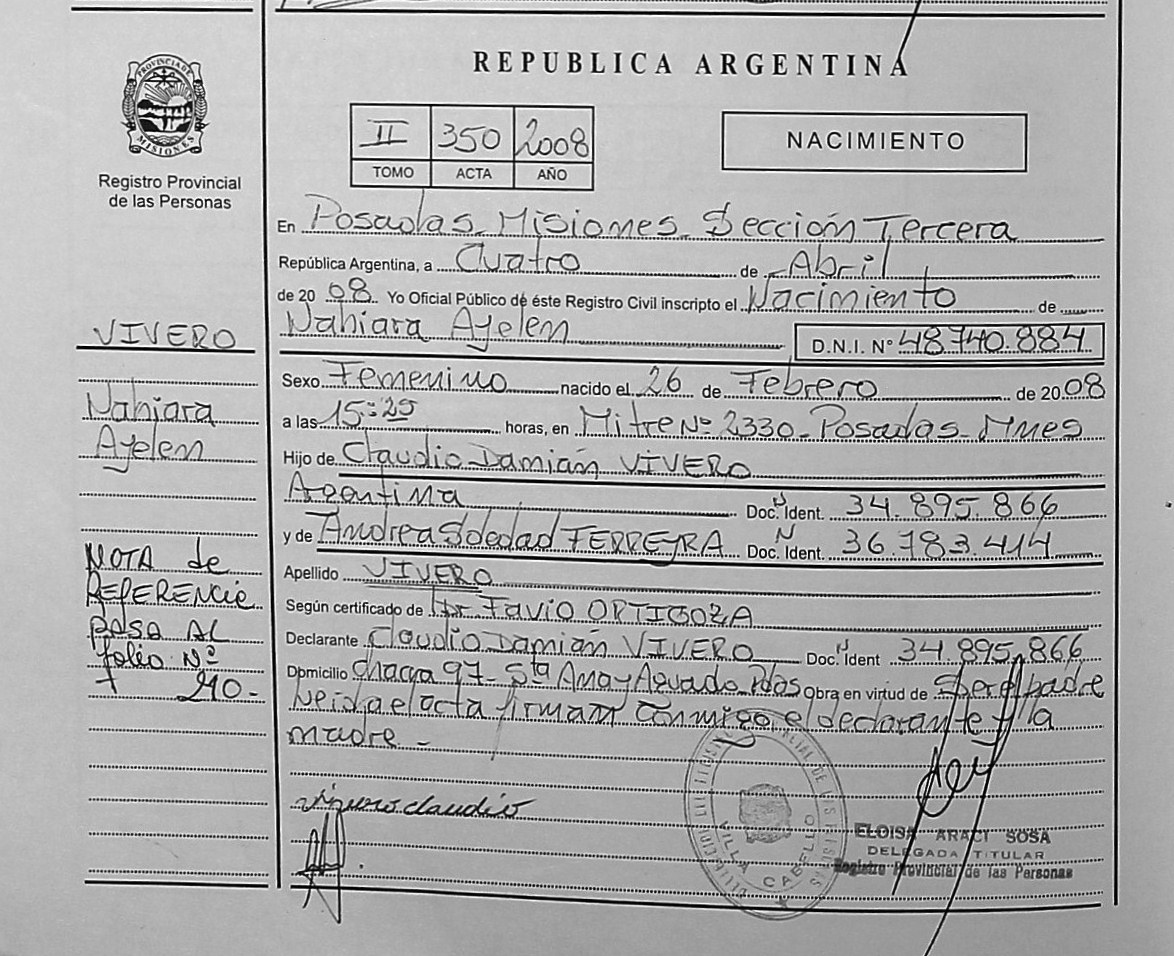 PROVINCIA DE
MISIONES
Registro Provincial
de las Personas
REPUBLICA ARGENTINA
II 350 2008
TOMO ACTA AÑO
NACIMIENTO
En Posadas - Misiones - Sección Tercera
República Argentina, a Cuatro de Abril
de 2008 Yo Oficial Público de éste Registro Civil inscripto el Nacimiento de
Nahiara Ayelen D.N.I. N° 48.740.884
Sexo Femenino nacido el 26 de Febrero de 2008
a las 15:25 horas, en Mitre Nº 2330 - Posadas - Mnes
Hijo de Claudio Damián VIVERO
Argentina Doc. Ident. 34.895.866
y de Andrea Soledad FERREYRA Doc. Ident. 36.783.414
Apellido VIVERO
Según certificado de Dr. Favio ORTIGOZA
Declarante Claudio Damián VIVERO Doc. Ident 34.895.866
Domicilio chacra 97 - Sta Ana y Aguado Pdas Obra en virtud de Ser el padre
leida el acta firman conmigo el declarante y la
madre -
vivero claudio
VILLA CABELLO
ELOISA ARACI SOSA
DELEGADA TITULAR
Registro Provincial de las Personas
VIVERO
Nahiara
Ayelen
NOTA de
REFERENCIA
PASA AL
folio Nº
210 -